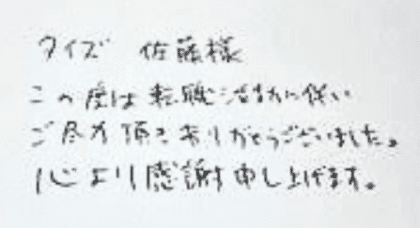 タイズ 佐藤様
この度は転職活動に伴い
ご尽力頂きありがとうございました。
心より感謝申し上げます。